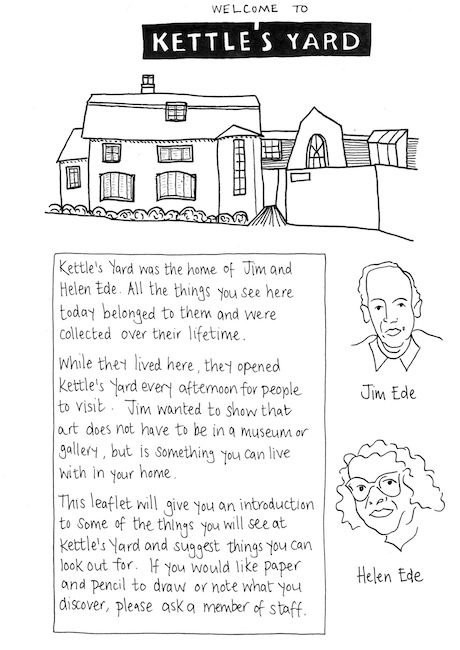 WELCOME TO
KETTLE'S YARD
Kettle's Yard was the home of Jim and
Helen Ede. All the things you see here
today belonged to them and were
collected over their lifetime.
While they lived here, they opened
Kettle's Yard every afternoon for people
to visit. Jim wanted to show that
art does not have to be in a museum or
gallery, but is something you can live
with in your home.
This leaflet will give you an introduction
to some of the things you will see at
Kettle's Yard and suggest things you can
look out for. If you would like paper
and pencil to draw or note what you
discover, please ask a member of staff.
Jim Ede
Helen Ede